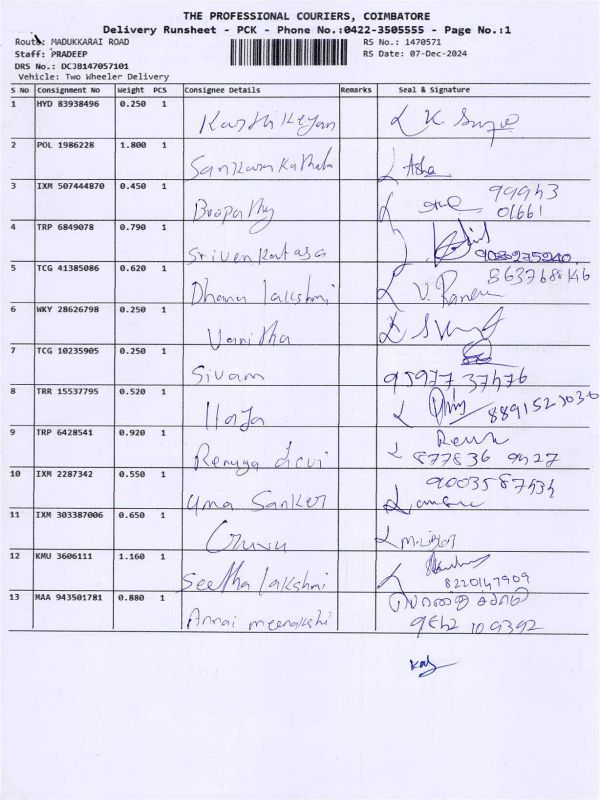 THE PROFESSIONAL COURIERS, COIMBATORE
Delivery Runsheet - PCK - Phone No.:0422-3505555 - Page No.:1
Route: MADUKKARAI ROAD
RS No.: 1470571
Staff: PRADEEP
RS Date: 07-Dec-2024
DRS No.: DCJB147057101
Vehicle: Two Wheeler Delivery
S No Consignment No Weight PCS Consignee Details Remarks Seal & Signature
1 HYD 83938496 0.250 1 Karthikeyan K.
2 POL 1986228 1.800 1 Asha
3 IXM 507444870 0.450 1 Boopathy 99943
01661
4 TRP 6849078 0.790 1 Srivenkatasa 9089275940
5 TCG 41385086 0.620 1 Dhana lakshmi 8637688146
V.
6 WKY 28626798 0.250 1 Vanitha
7 TCG 10235905 0.250 1 Sivam 95977 37476
8 TRR 15537795 0.520 1
9 TRP 6428541 0.920 1 Renuga devi Renu
877836 9427
10 IXM 2287342 0.550 1 Uma Sanker 9003587434
11 IXM 303387006 0.650 1 Guru
12 KMU 3606111 1.160 1 Seetha lakshmi 8220147909
13 MAA 943501781 0.880 1 Annai meenakshi